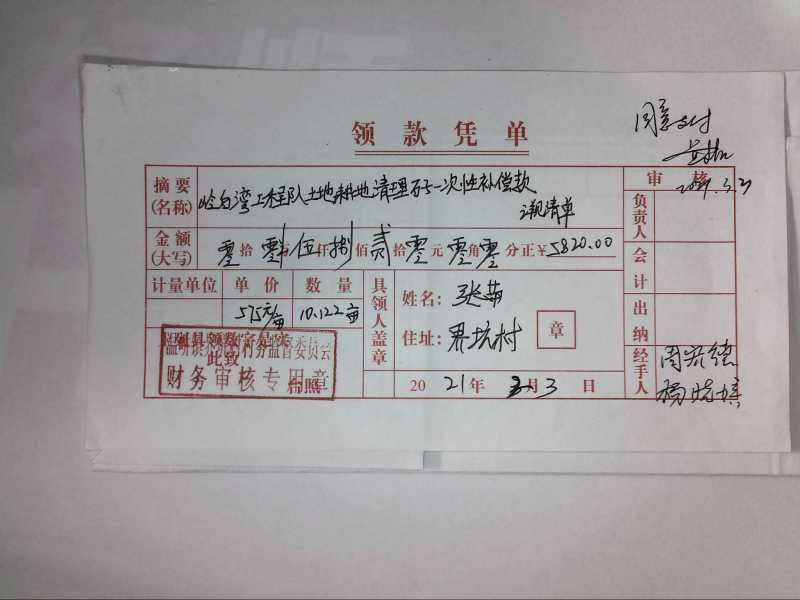 领款凭单
同意支付
审核
2021.3.2
摘要(名称) 工程队土地耕地清理 一次性补偿款
详见清单
金额(大写) 零拾零万伍仟捌佰贰拾零元零角零分正¥5820.00
计量单位 单价 数量
575元/亩 10.122亩
具领人盖章
姓名:张
住址:界坑村
章
2021年 3月3日
此致
台照
财务审核专用章
负责人
会计
出纳
经手人
周
杨